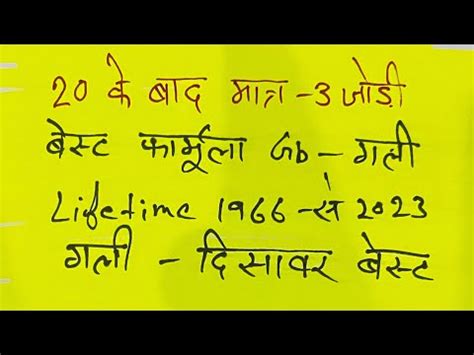 20 के बाद मात्र - 3 जोडी
बेस्ट फार्मूला Gb - गली
Lifetime 1966 - से 2023
गली - दिसावर बेस्ट